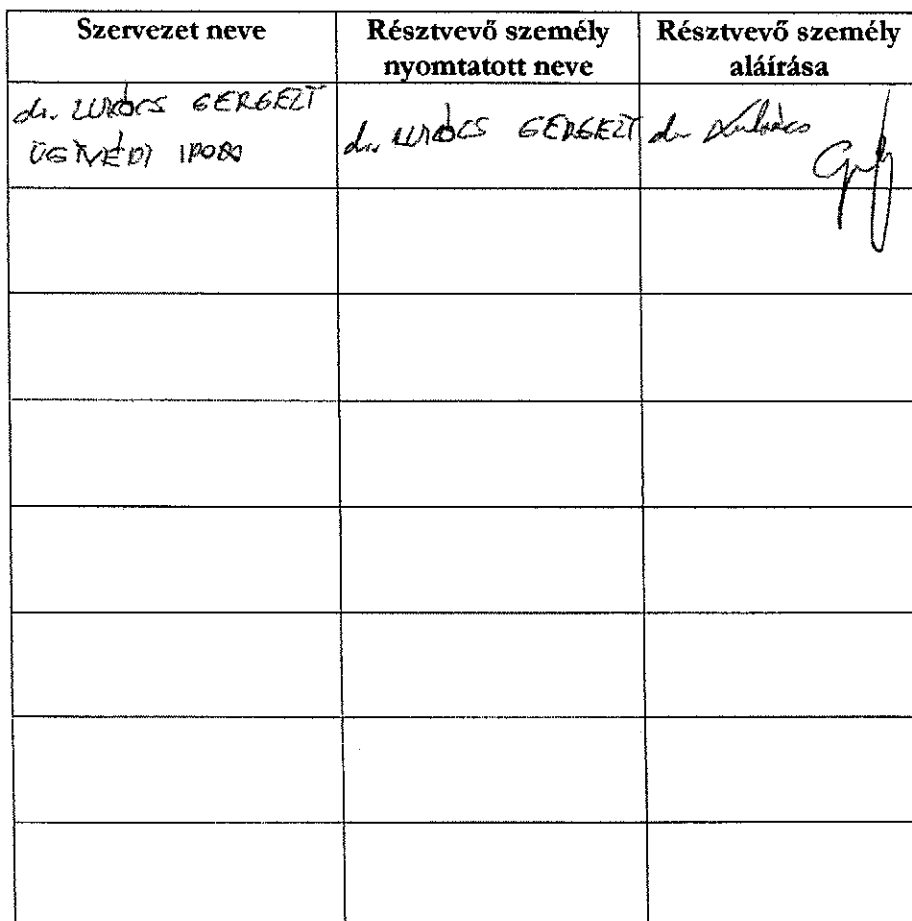 Szervezet neve
Résztvevő személy
nyomtatott neve
Résztvevő személy
aláírása
dr. LUKÁCS GERGELY
ÜGYVÉDI IRODA
dr. LUKÁCS GERGELY
dr Lukács